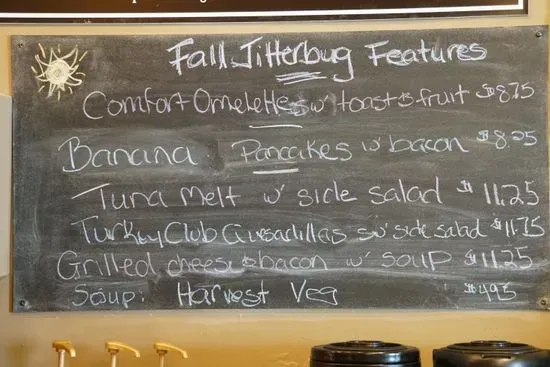 Fall Jitterbug Features
Comfort Omelettes w/ toast & fruit $8.75
Banana Pancakes w/ bacon $8.25
Tuna Melt w/ side salad $11.25
Turkey Club Quesadillas w/ side salad $11.75
Grilled cheese & bacon w/ soup $11.25
Soup: Harvest Veg $4.95